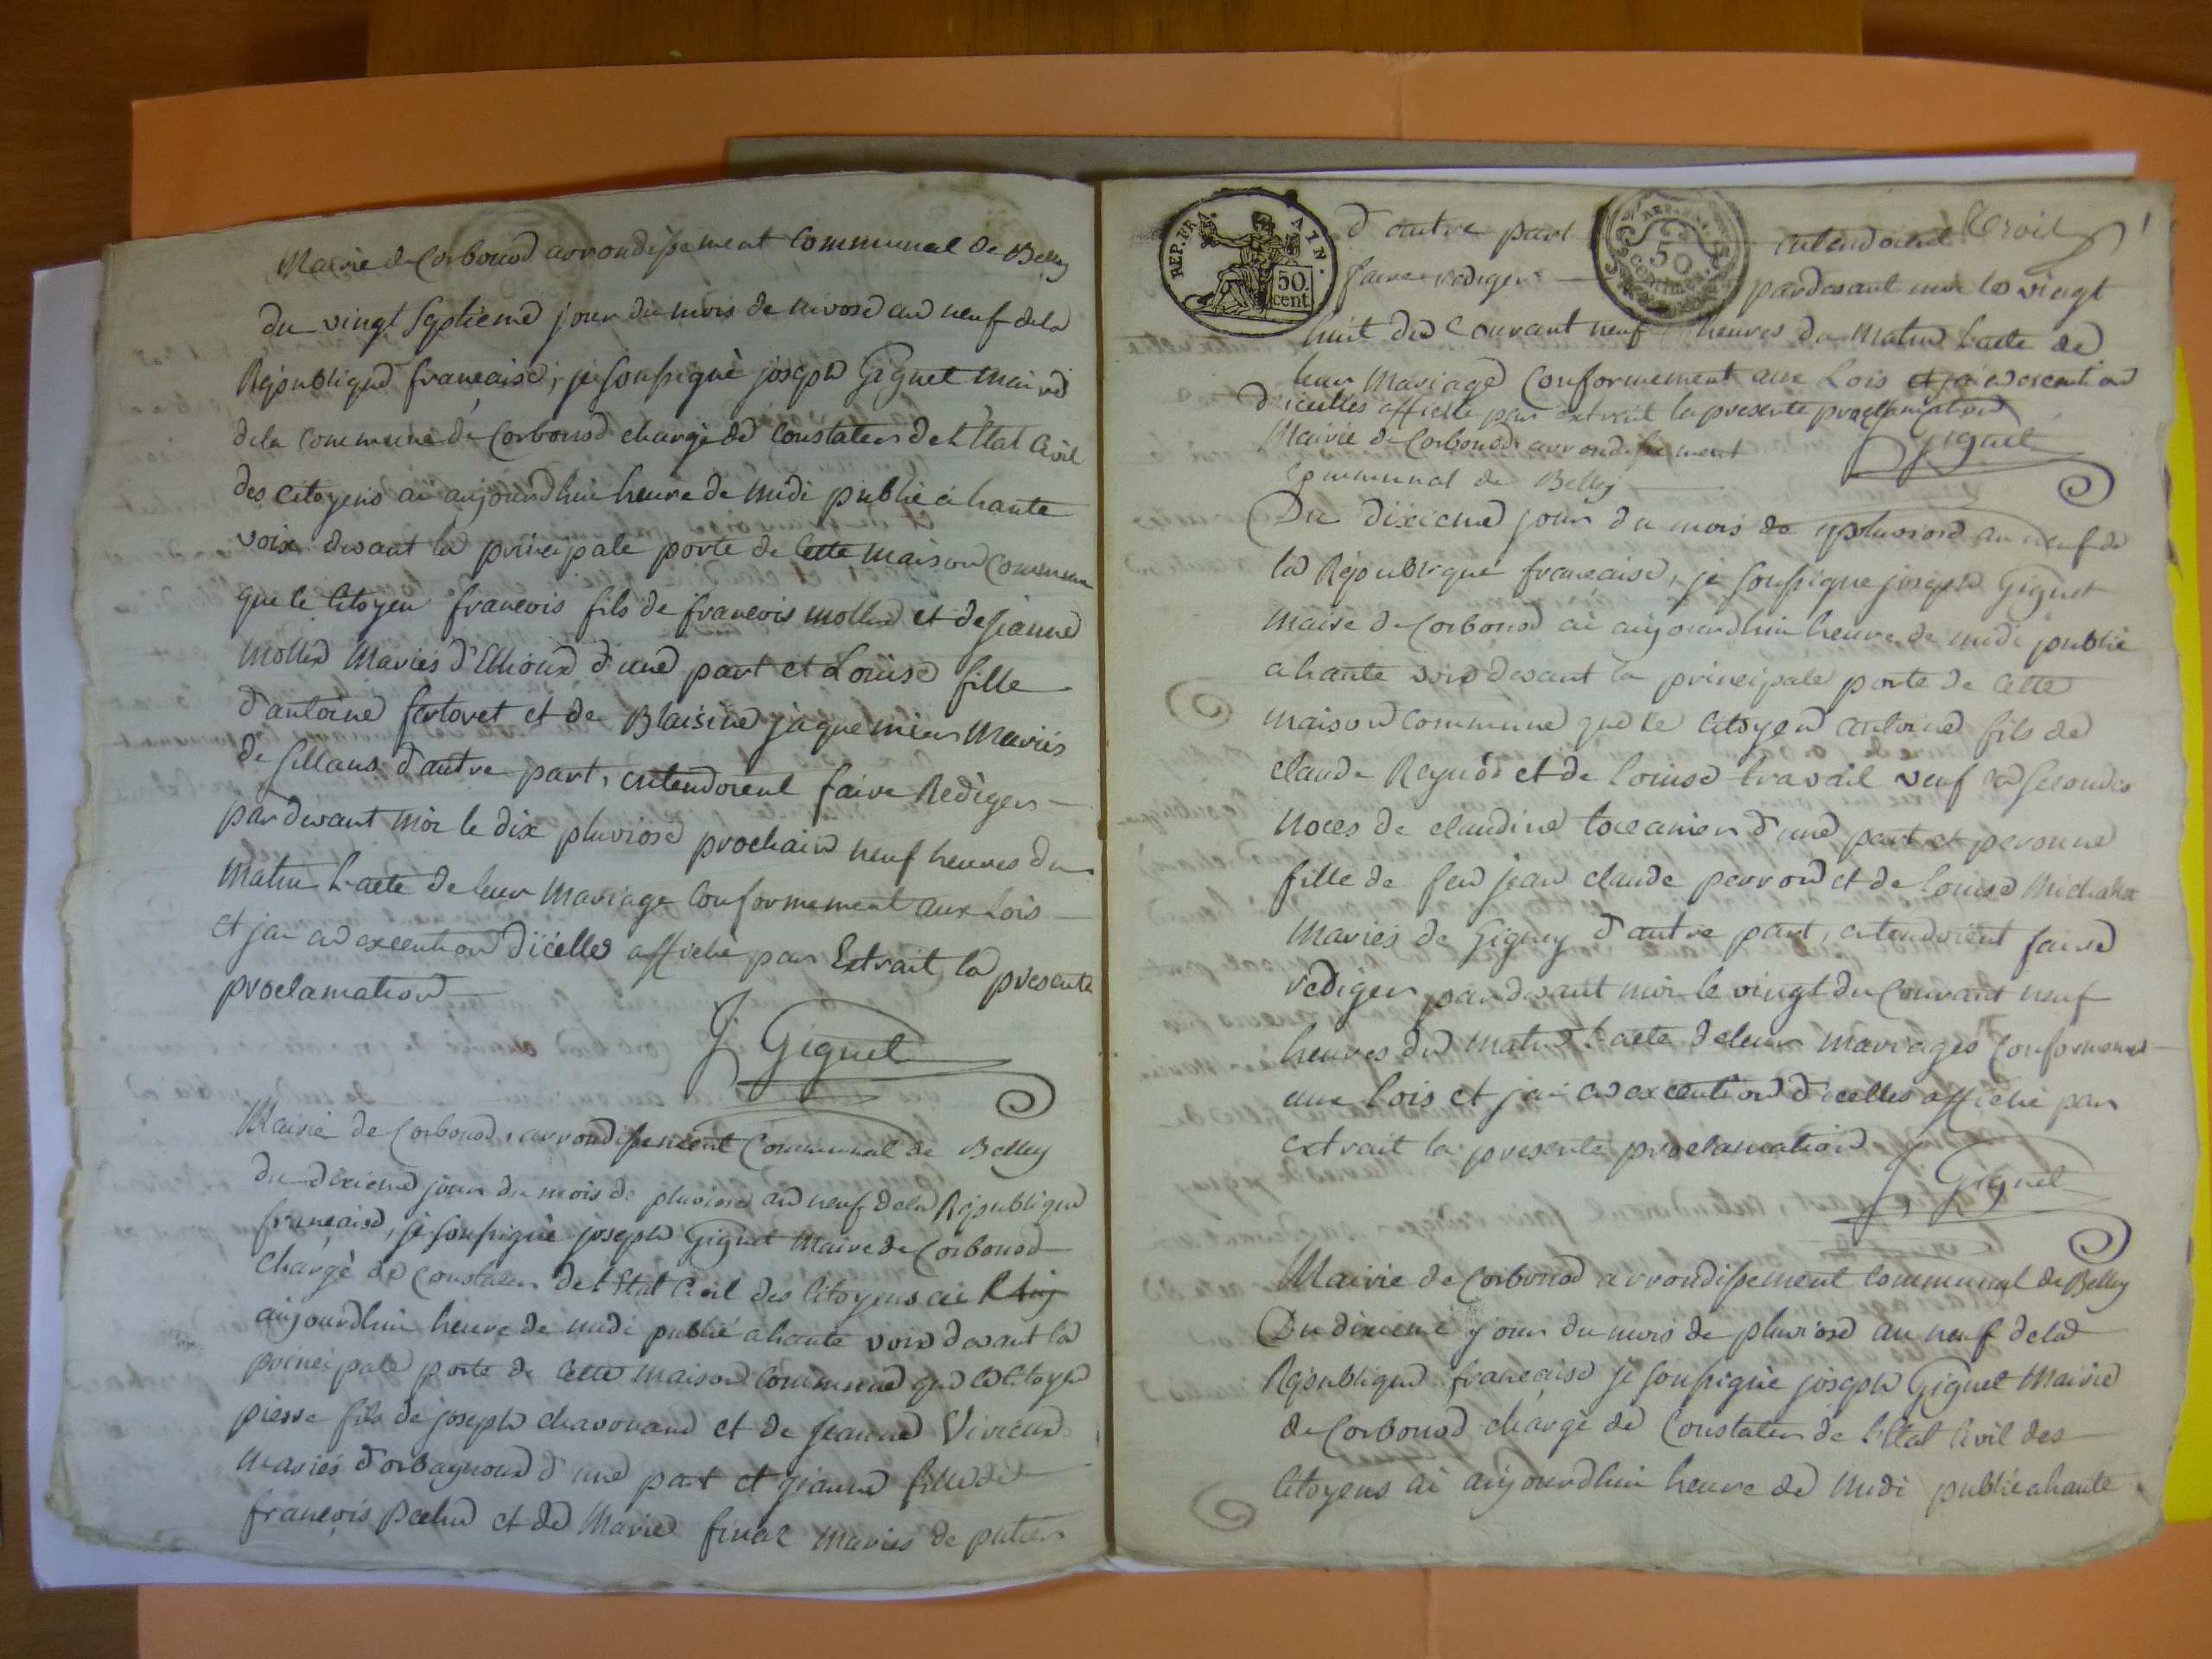 Mairie de Corbonod arrondissement Communal de Belley
du vingt septieme jour du mois de nivose an neuf de la
République française, je soussigné joseph Giguet maire
de la commune de Corbonod chargé de constater de l'Etat Civil
des citoyens ai aujourdhui heure de midi publié à haute
voix devant la principale porte de cette maison commune
que le Citoyen francois fils de francois mollex et de jeanne
mollex mariés d'Etrioux d'une part et Louise fille
d'antoine fertoret et de Blaisine jaquemier mariés
de Sillans d'autre part, entendoient faire Rediger
par devant moi le dix pluviose prochain neuf heures du
matin l'acte de leur mariage conformement aux Lois
et j'ai en execution d'icelles affiché par Extrait la presente
proclamation
J Giguet
Mairie de Corbonod, arrondissement Communal de Belley
du dixieme jour du mois de pluviose an neuf de la République
française, je soussigné joseph Giguet Maire de Corbonod
chargé de constater de l'Etat Civil des Citoyens ai
aujourdhui heure de midi publié a haute voix devant la
principale porte de cette maison commune que le Citoyen
pierre fils de joseph chavouand et de jeanne Vivieux
mariés d'orbagnoux d'une part et jeanne fille de
françois et de Marie finaz mariés de putier
REP. FRA. AIN. 50. cent
REP. 50 centimes
trois 1
d'autre part entendoient
faire rediger pardevant moi le vingt
huit du courant neuf heures du matin l'acte de
leur mariage conformement aux Lois et j'ai en execution
d'icelles affiché par extrait la presente proclamation
Mairie de Corbonod arrondissement J Giguet
communal de Belley
Du dixieme jour du mois de pluviose an neuf de
la République française, je soussigne joseph Giguet
maire de Corbonod ai aujourdhui heure de midi publié
a haute voix devant la principale porte de cette
maison commune que le Citoyen antoine fils de
claude Reynod et de louise travail veuf en secondes
noces de claudine tocanier d'une part et peronne
fille de feu jean claude perron et de Louise
mariés de Gigney d'autre part, entendoient faire
rediger par devant moi le vingt du courant neuf
heures du matin l'acte de leur mariages conformement
aux lois et j'ai en execution d'icelles affiché par
extrait la presente proclamation
J Giguet
Mairie de Corbonod arrondissement communal de Belley
Du dixieme jour du mois de pluviose an neuf de la
République française je soussigné joseph Giguet Maire
de Corbonod chargé de constater de l'Etat Civil des
Citoyens ai aujourdhui heure de midi publié a haute